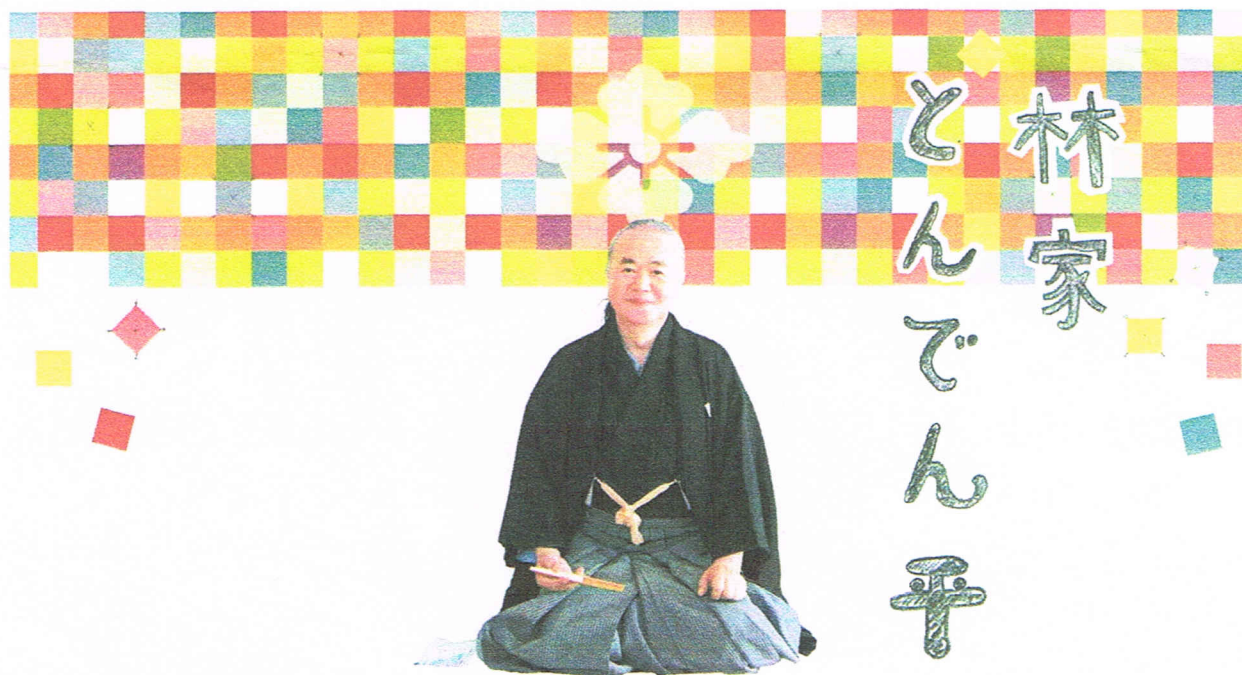 林家
とんでん平